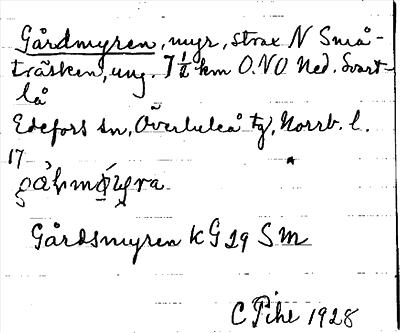 Gårdmyren, myr, strax N Små-
träsken, ung. 7½ km O.NO Ned. Svart-
lå
Edefors sn, Överluleå tg, Norrb. l.
17
Gårdsmyren KG 29 Sm
C Pihl 1928